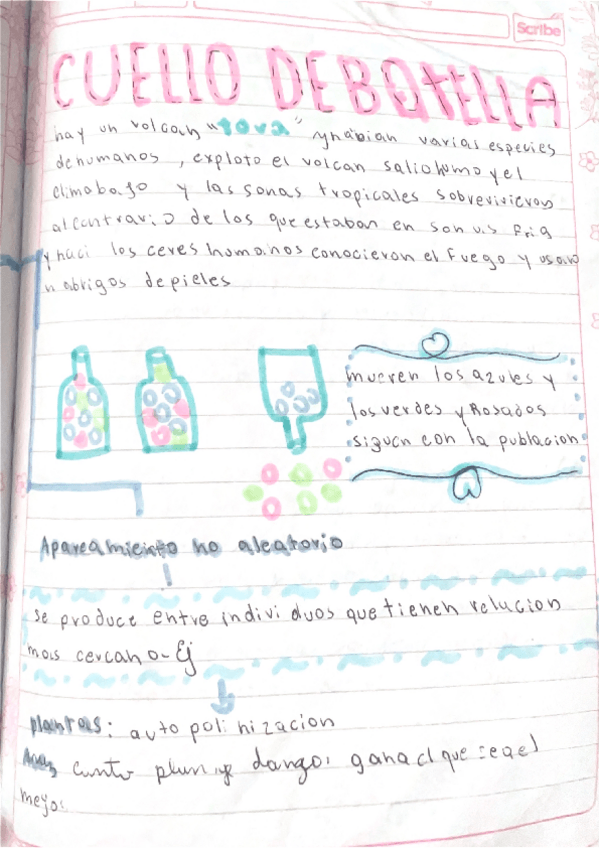 Scribe
CUELLO DE BOTELLA
hay un volcan "tova" y habian varias especies
de humanos, exploto el volcan salio humo y el
clima bajo y las sonas tropicales sobrevivieron
al contrario de los que estaban en sonas fria
y haci los ceres humanos conocieron el fuego y usaro
n abrigos de pieles
mueren los azules y
los verdes y Rosados
siguen con la publacion
Apareamiento no aleatorio
se produce entre indivi duos que tienen relucion
mas cercano- Ej
plantas: auto poli nizacion
canto danza: gana el que sea el
mejor